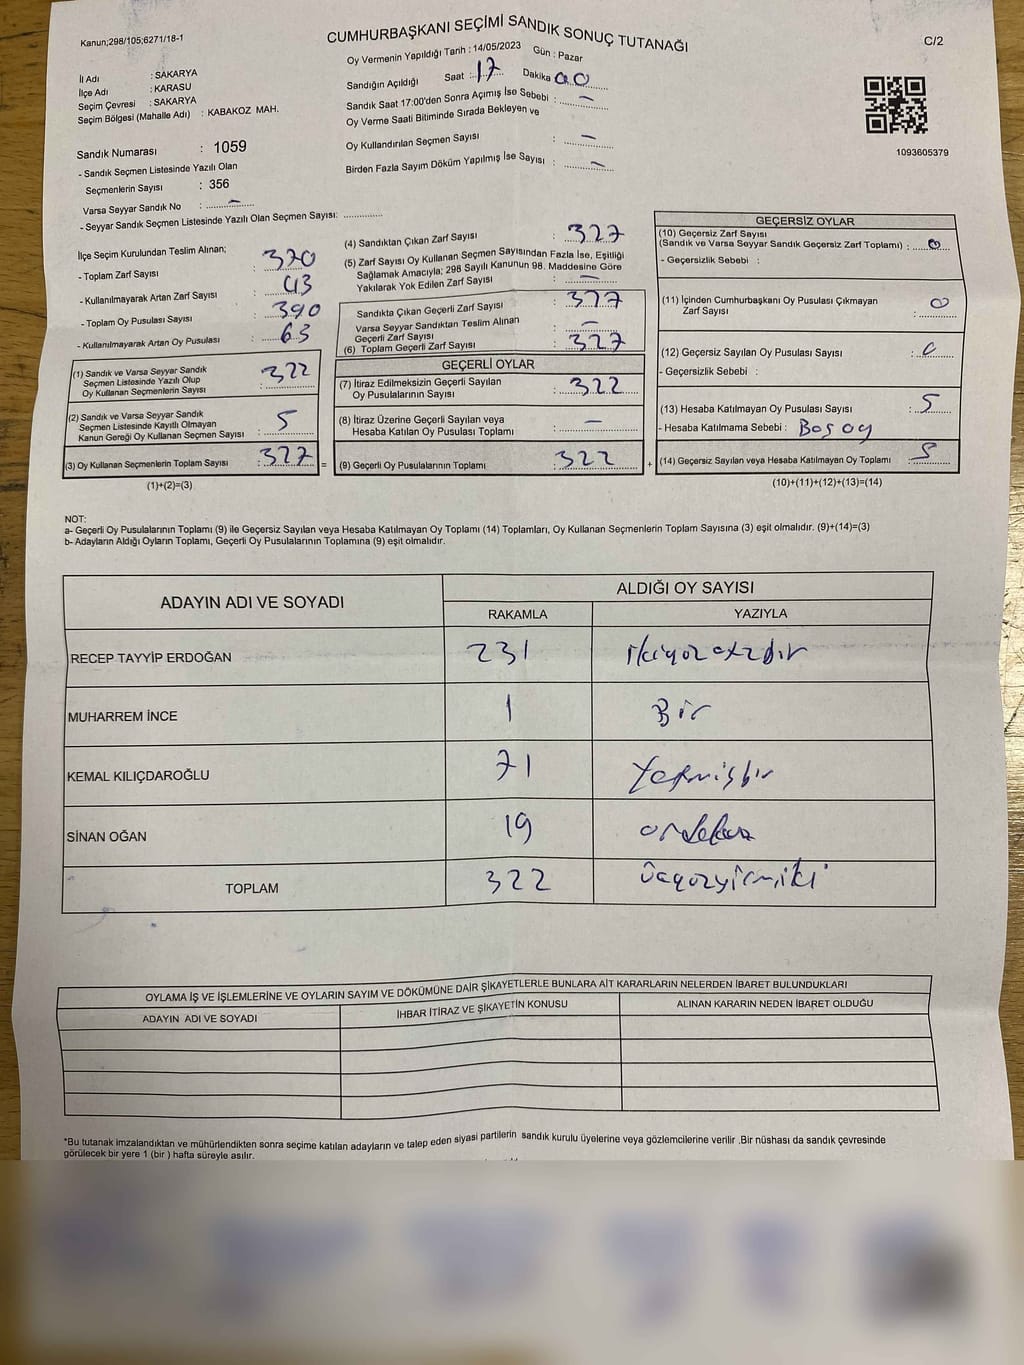 Kanun;298/105;6271/18-1
CUMHURBAŞKANI SEÇİMİ SANDIK SONUÇ TUTANAĞI
C/2
İl Adı : SAKARYA
İlçe Adı : KARASU
Seçim Çevresi : SAKARYA
Seçim Bölgesi (Mahalle Adı) : KABAKOZ MAH.
Sandık Numarası : 1059
- Sandık Seçmen Listesinde Yazılı Olan
Seçmenlerin Sayısı : 356
Varsa Seyyar Sandık No : –
- Seyyar Sandık Seçmen Listesinde Yazılı Olan Seçmen Sayısı: ............
Oy Vermenin Yapıldığı Tarih : 14/05/2023 Gün : Pazar
Sandığın Açıldığı Saat : 17 Dakika 00
Sandık Saat 17:00'den Sonra Açımış İse Sebebi : –
Oy Verme Saati Bitiminde Sırada Bekleyen ve
Oy Kullandırılan Seçmen Sayısı : –
Birden Fazla Sayım Döküm Yapılmış İse Sayısı : –
1093605379
İlçe Seçim Kurulundan Teslim Alınan;
- Toplam Zarf Sayısı : 370
- Kullanılmayarak Artan Zarf Sayısı : 43
- Toplam Oy Pusulası Sayısı : 390
- Kullanılmayarak Artan Oy Pusulası : 63
(1) Sandık ve Varsa Seyyar Sandık
Seçmen Listesinde Yazılı Olup
Oy Kullanan Seçmenlerin Sayısı : 322
(2) Sandık ve Varsa Seyyar Sandık
Seçmen Listesinde Kayıtlı Olmayan
Kanun Gereği Oy Kullanan Seçmen Sayısı : 5
(3) Oy Kullanan Seçmenlerin Toplam Sayısı : 327 =
(1)+(2)=(3)
(4) Sandıktan Çıkan Zarf Sayısı : 327
(5) Zarf Sayısı Oy Kullanan Seçmen Sayısından Fazla İse, Eşitliği
Sağlamak Amacıyla; 298 Sayılı Kanunun 98. Maddesine Göre
Yakılarak Yok Edilen Zarf Sayısı : –
Sandıkta Çıkan Geçerli Zarf Sayısı : 327
Varsa Seyyar Sandıktan Teslim Alınan
Geçerli Zarf Sayısı : –
(6) Toplam Geçerli Zarf Sayısı : 327
GEÇERLİ OYLAR
(7) İtiraz Edilmeksizin Geçerli Sayılan
Oy Pusulalarının Sayısı : 322
(8) İtiraz Üzerine Geçerli Sayılan veya
Hesaba Katılan Oy Pusulası Toplamı : –
(9) Geçerli Oy Pusulalarının Toplamı : 322 +
GEÇERSİZ OYLAR
(10) Geçersiz Zarf Sayısı
(Sandık ve Varsa Seyyar Sandık Geçersiz Zarf Toplamı) : 0
- Geçersizlik Sebebi :
(11) İçinden Cumhurbaşkanı Oy Pusulası Çıkmayan
Zarf Sayısı : 0
(12) Geçersiz Sayılan Oy Pusulası Sayısı : 0
- Geçersizlik Sebebi :
(13) Hesaba Katılmayan Oy Pusulası Sayısı : 5
- Hesaba Katılmama Sebebi : Boş oy
(14) Geçersiz Sayılan veya Hesaba Katılmayan Oy Toplamı : 5
(10)+(11)+(12)+(13)=(14)
NOT:
a- Geçerli Oy Pusulalarının Toplamı (9) ile Geçersiz Sayılan veya Hesaba Katılmayan Oy Toplamı (14) Toplamları, Oy Kullanan Seçmenlerin Toplam Sayısına (3) eşit olmalıdır. (9)+(14)=(3)
b- Adayların Aldığı Oyların Toplamı, Geçerli Oy Pusulalarının Toplamına (9) eşit olmalıdır.
ADAYIN ADI VE SOYADI ALDIĞI OY SAYISI
RAKAMLA YAZIYLA
RECEP TAYYİP ERDOĞAN 231 ikiyüzotuzbir
MUHARREM İNCE 1 Bir
KEMAL KILIÇDAROĞLU 71 Yetmişbir
SİNAN OĞAN 19 ondokuz
TOPLAM 322 üçyüzyirmiiki
OYLAMA İŞ VE İŞLEMLERİNE VE OYLARIN SAYIM VE DÖKÜMÜNE DAİR ŞİKAYETLERLE BUNLARA AİT KARARLARIN NELERDEN İBARET BULUNDUKLARI
ADAYIN ADI VE SOYADI İHBAR İTİRAZ VE ŞİKAYETİN KONUSU ALINAN KARARIN NEDEN İBARET OLDUĞU
*Bu tutanak imzalandıktan ve mühürlendikten sonra seçime katılan adayların ve talep eden siyasi partilerin sandık kurulu üyelerine veya gözlemcilerine verilir .Bir nüshası da sandık çevresinde
görülecek bir yere 1 (bir ) hafta süreyle asılır.